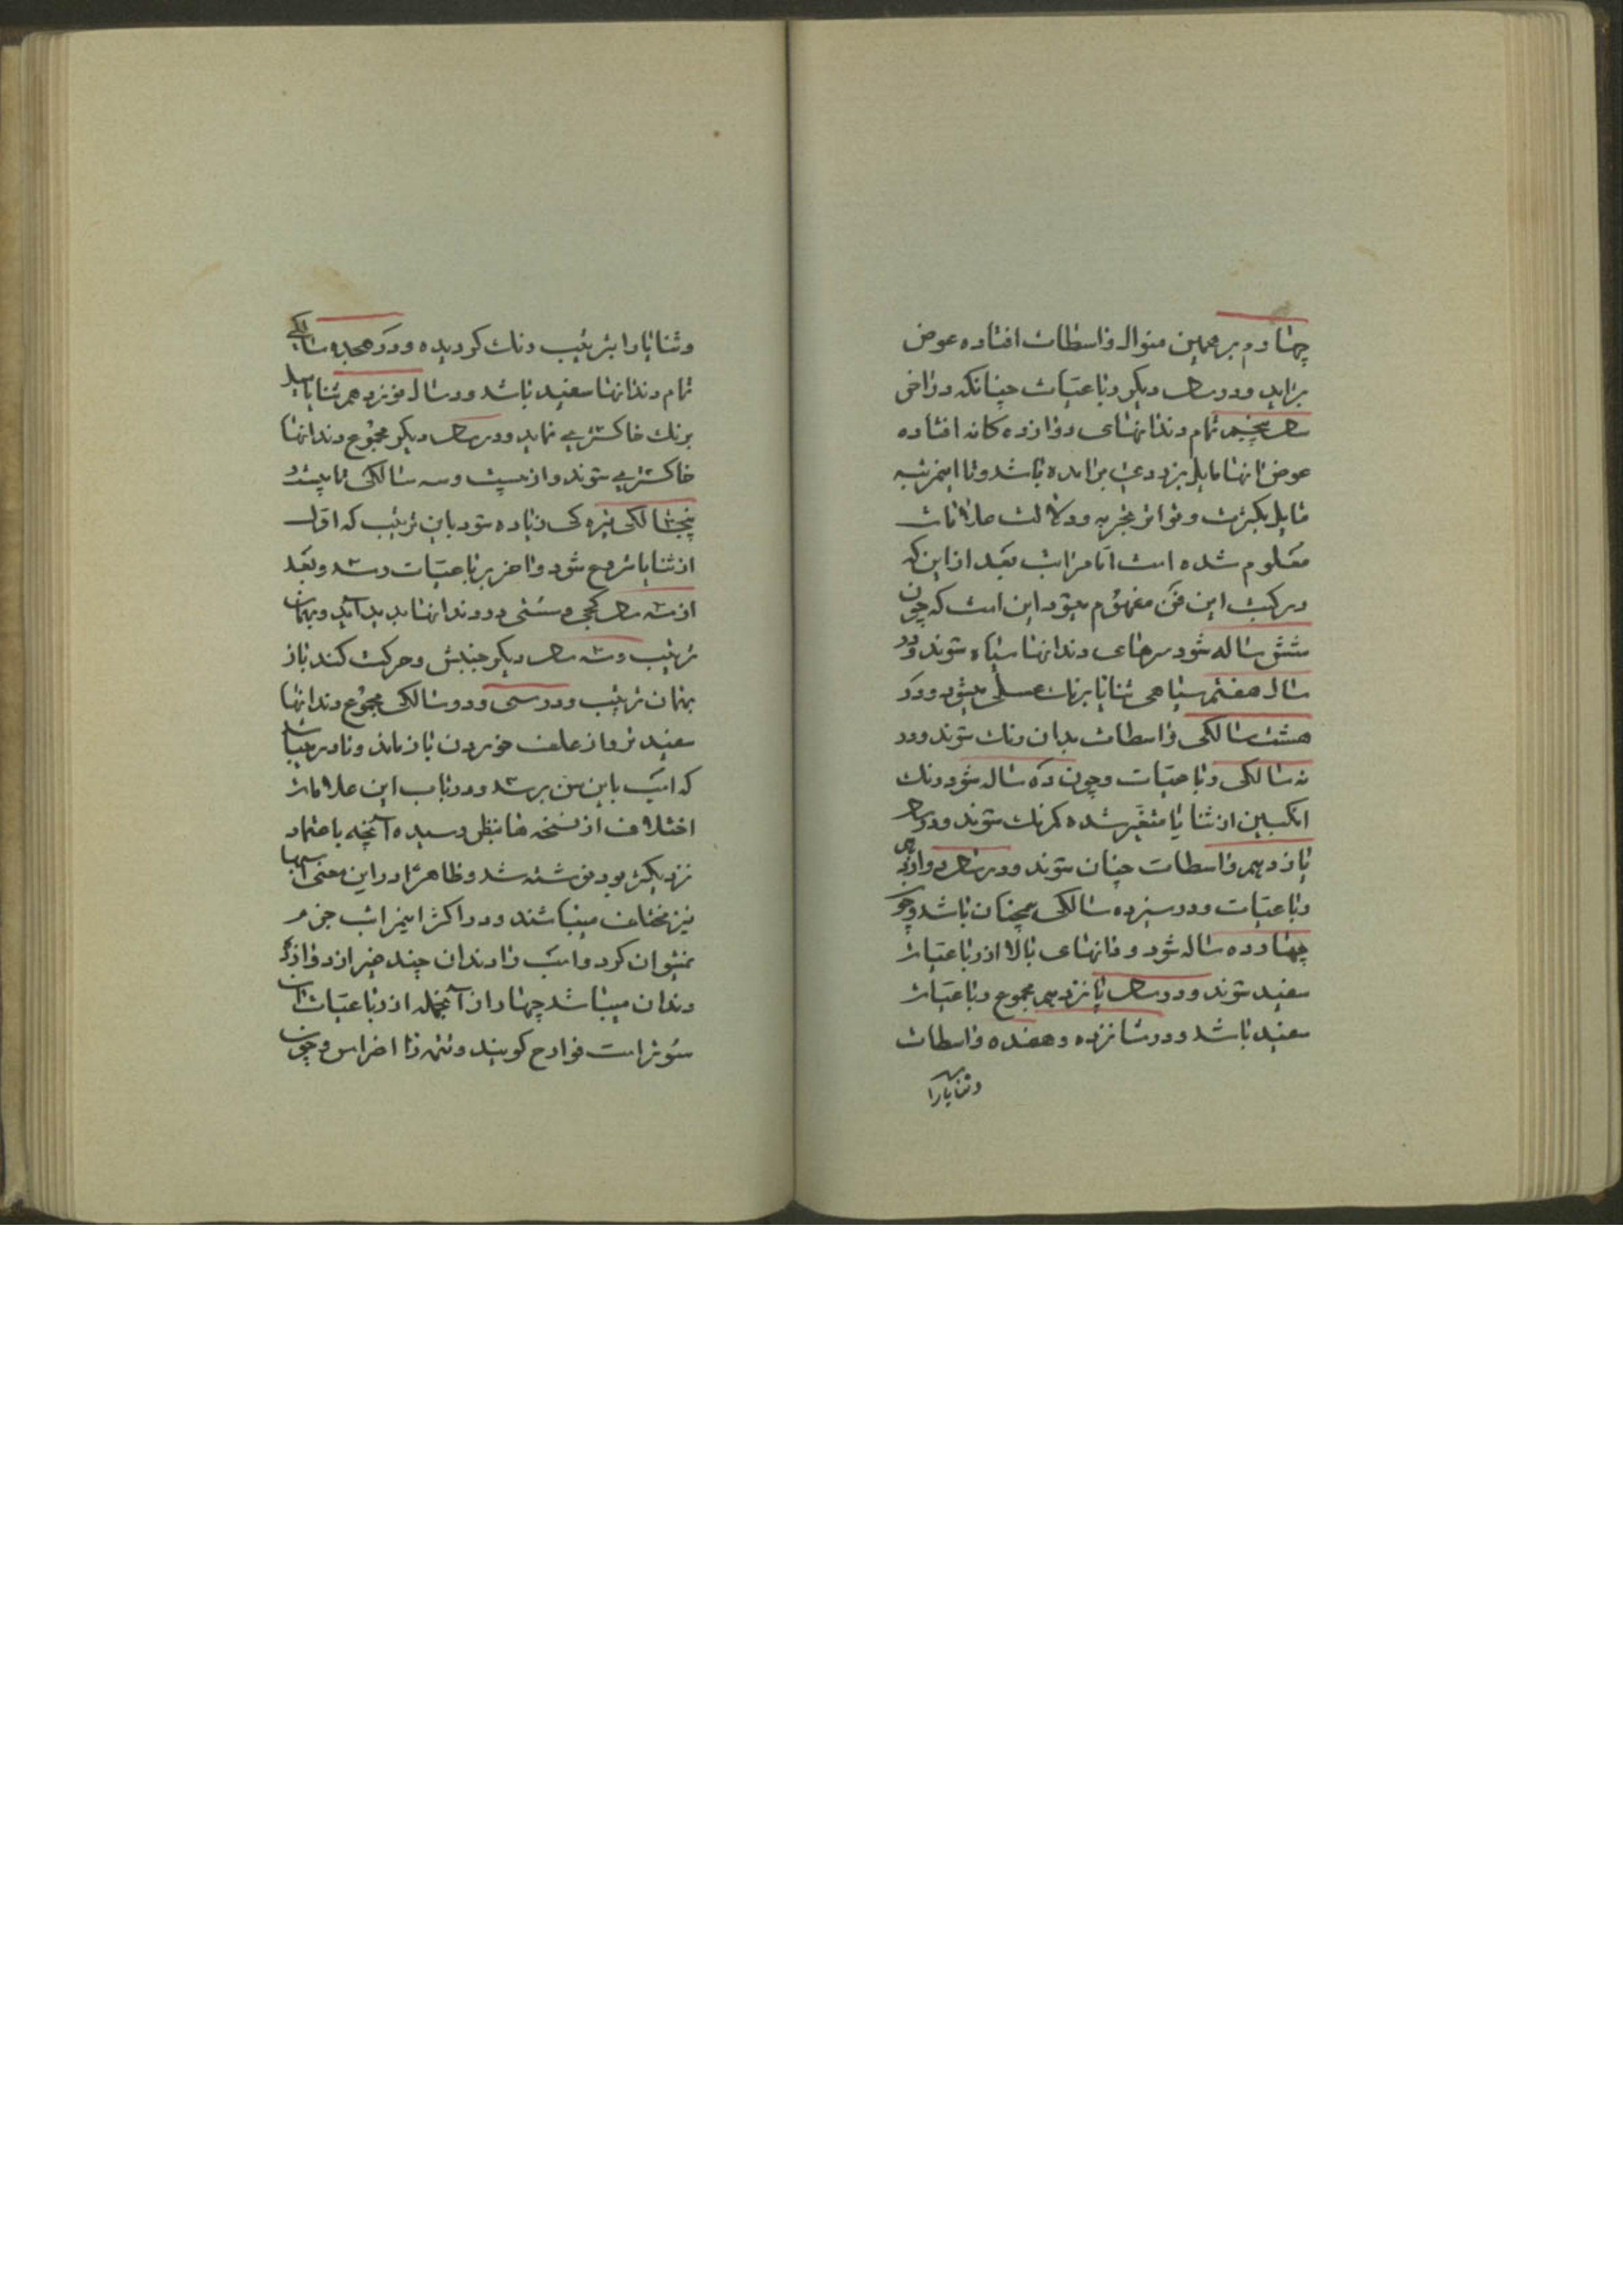 چهارم بر همین منوال واسطات افتاده عوض
براید و در سال دیکر رباعیات چنانکه در اخر
سال پنجم تمام دندانهای دوازده کانه افتاده
عوض انها مایل بزردی برامده باشد و تا اینمرتبه
بکثرت و تواتر تجربه و دلالت علامات
معلوم شده است اما مراتب بعد از این که
در کتب این فن مفهوم میشود این است که چون
شش ساله شود سرهای دندانها سیاه شوند و در
سال هفتم سیاهی ثنایا برنک عسلی میشود و در
هشت سالکی واسطات بدان رنک شوند و در
نه سالکی رباعیات و چون ده ساله شود رنک
انکبین از ثنایا متغیر شده کمرنک شوند و در سال
یازدهم واسطات چنان شوند و در سال دوازدهم
رباعیات و در سیزده سالکی همچنان باشد و چون
چهارده ساله شود دندانهای بالا از رباعیات
سفید شوند و در سال پانزدهم مجموع رباعیات
سفید باشد و در شانزده و هفده واسطات
وثنایارا
وثنایا را بترتیب رنک کردیده و در هجده سالکی
تمام دندانها سفید باشد و در سال نوزدهم ثنایا مایل
برنک خاکستری نماید و در سال دیکر مجموع دندانها
خاکستری شوند و از بیست و سه سالکی تا بیست
پنجسالکی تیره کی زیاده شود باین ترتیب که اول
از ثنایا شروع شود و اخر برباعیات رسد و بعد
از سه سال کجی و سستی در دندانها پدید آید و بهمان
ترتیب و سه سال دیکر جنبش و حرکت کند باز
بهمان ترتیب و در سی و دو سالکی مجموع دندانها
سفید تر و از علف خوردن باز ماند و نادر میباشد
که اسب باین سن برسد و در باب این علامات
اختلاف از نسخه ها بنظر رسیده آنچه باعتماد
نزدیکتر بود نوشته شد و ظاهرا در این معنی اسبها
نیز مختلف میباشند و در اکثر اینمراتب جزم
نمیتوان کرد و اسب را دندان چند غیر از دوازده
دندان میباشد چهار از آنجمله از رباعیات ان
سوتر است قوارح کویند و تتمه را اضراس و چون